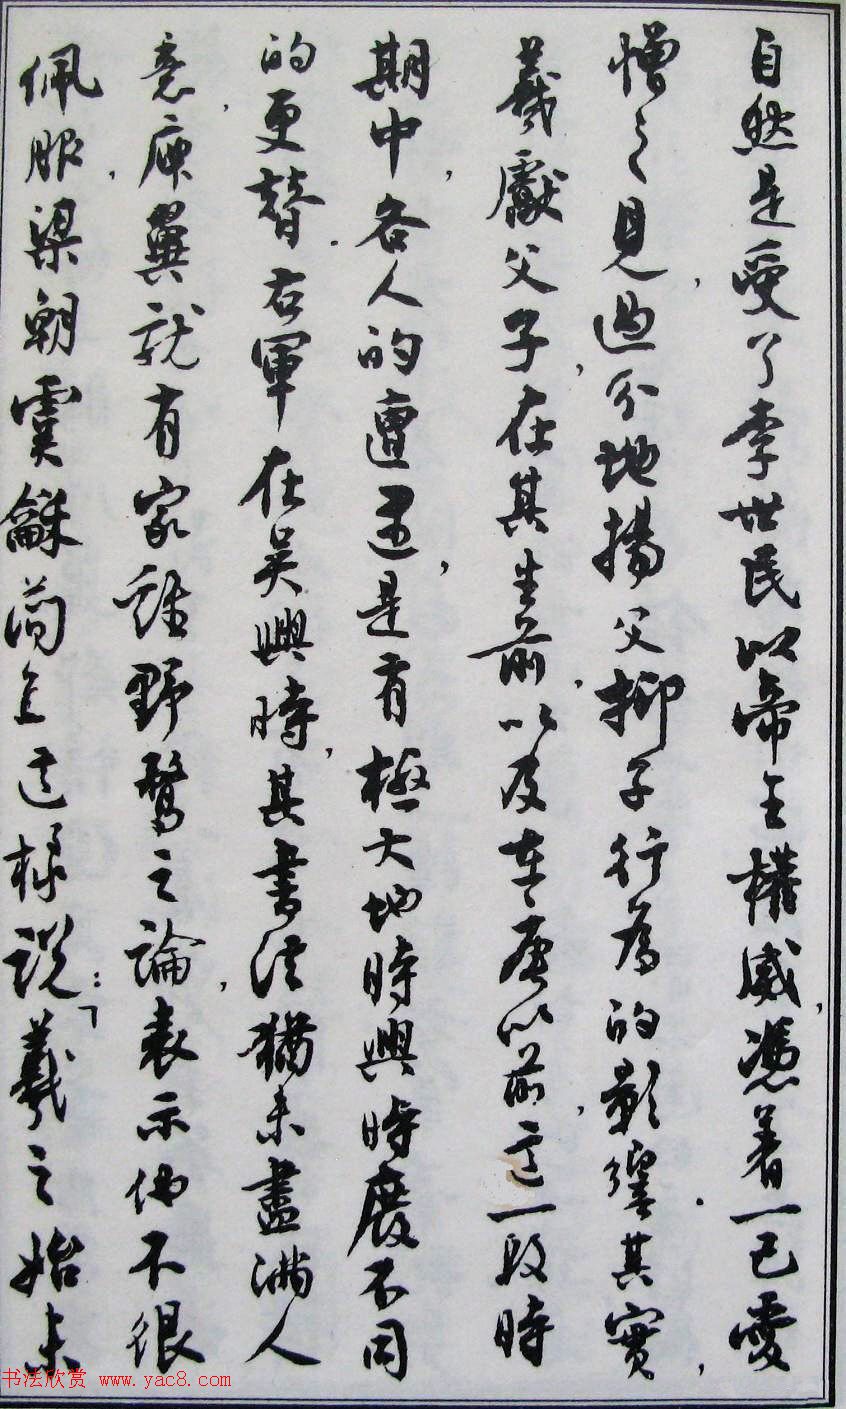 自然是受了李世民以帝王權威，憑着一己愛
憎之見，過分地揚父抑子行為的影響．其實，
羲獻父子，在其生前，以及在唐以前，這一段時
期中，各人的遭遇，是有極大地時興時廢不同
的更替．右軍在吳興時，其書法猶未盡滿人
意，庾翼就有家雞野鶩之論，表示他不很
佩服，梁朝虞龢簡直這樣說：「羲之始未
书法欣赏 www.yac8.com